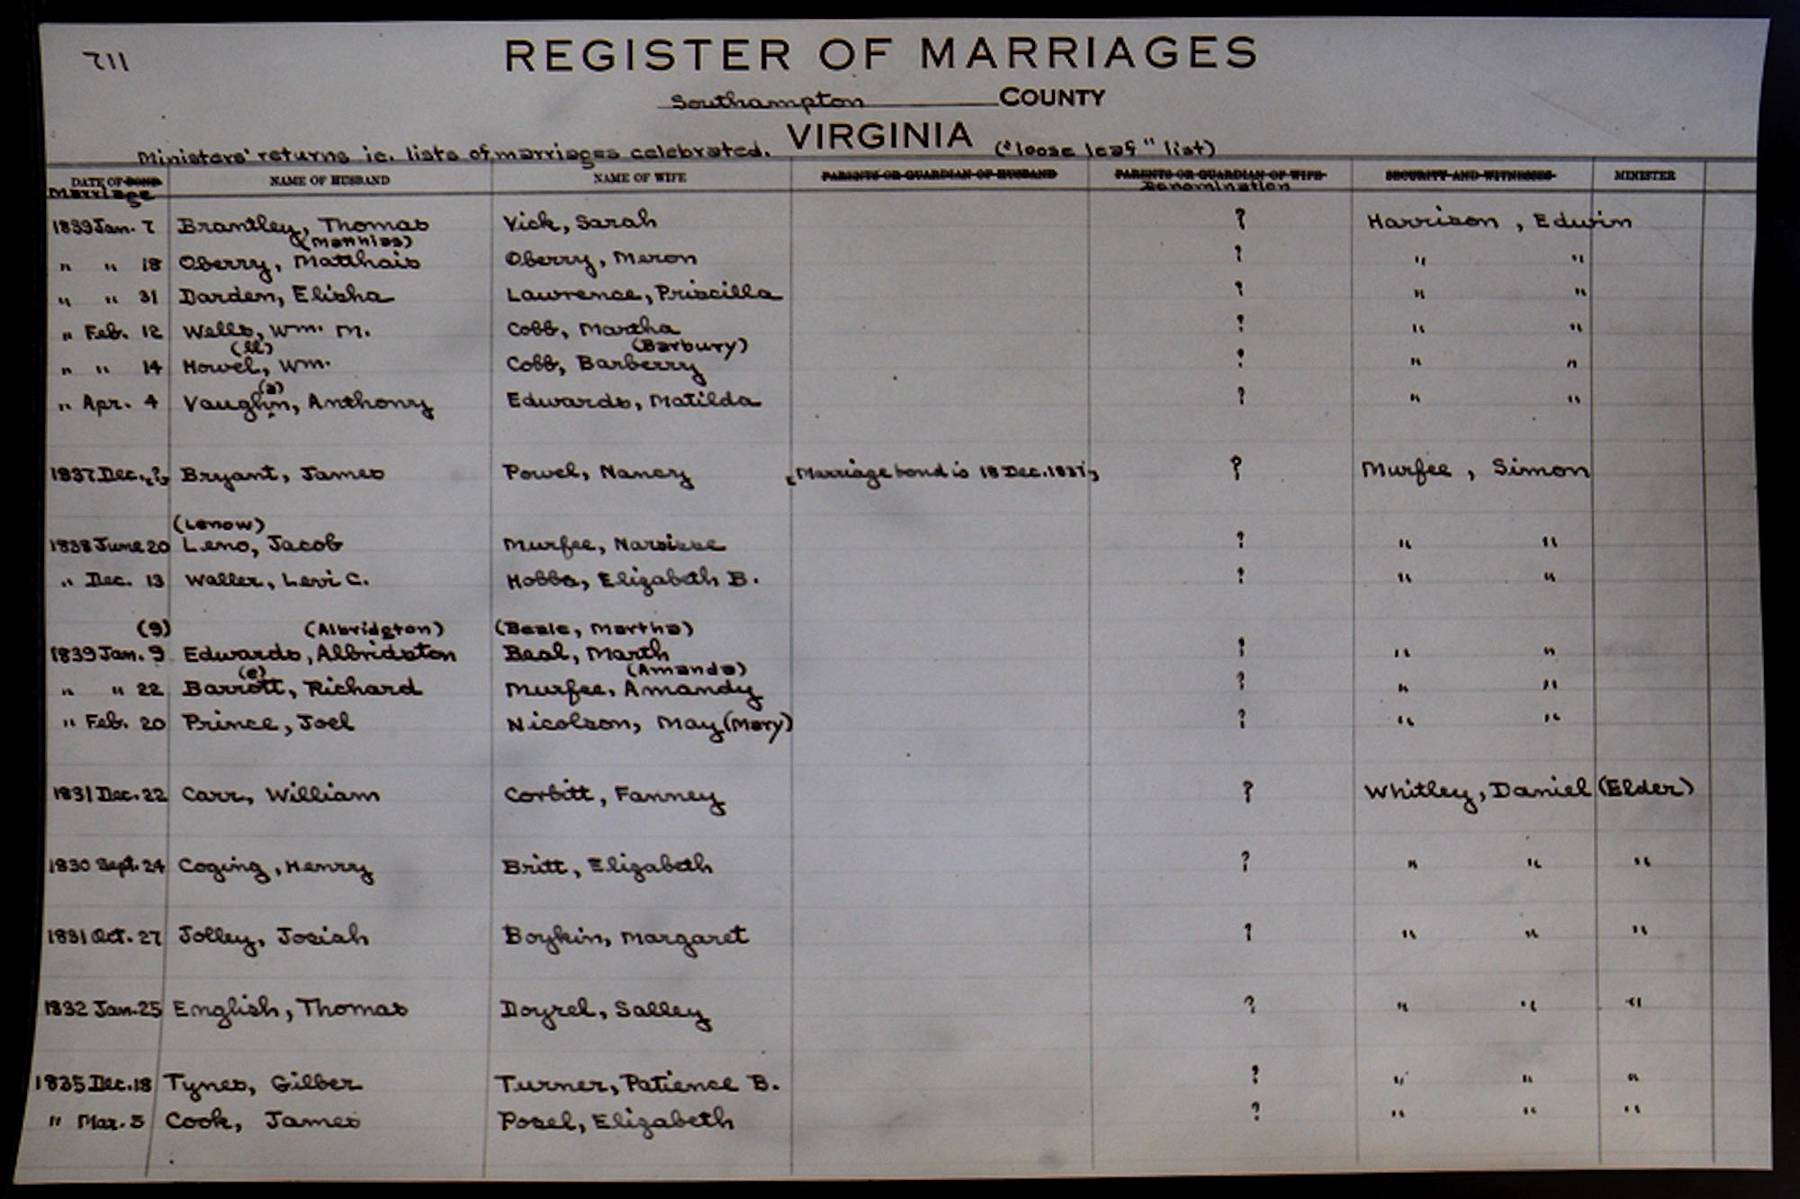 711
REGISTER OF MARRIAGES
Southampton COUNTY
VIRGINIA
Ministers' returns ie. lists of marriages celebrated. ("loose leaf" list)
DATE OF BOND NAME OF HUSBAND NAME OF WIFE PARENTS OR GUARDIAN OF HUSBAND PARENTS OR GUARDIAN OF WIFE SECURITY AND WITNESSES MINISTER
Marriage Denomination
1839 Jan. 7 Brantley, Thomas Vick, Sarah ? Harrison, Edwin
(Mathias)
" " 18 Oberry, Matthais Oberry, Meron ? " "
" " 31 Darden, Elisha Lawrence, Priscilla ? " "
" Feb. 12 Wells, Wm. M. Cobb, Martha ? " "
(ll) (Barbury)
" " 14 Howel, Wm. Cobb, Barberry ? " "
(a)
" Apr. 4 Vaughn, Anthony Edwards, Matilda ? " "
1837 Dec. ? Bryant, James Powel, Nancy [Marriage bond is 18 Dec. 1837] ? Murfee, Simon
(Lenow)
1838 June 20 Leno, Jacob Murfee, ? " "
" Dec. 13 Waller, Levi C. Hobbs, Elizabeth B. ? " "
(9) (Albridgton) (Beale, Martha)
1839 Jan. 9 Edwards, Albridston Beal, Marth ? " "
(e) (Amanda)
" " 22 Barrott, Richard Murfee, Amandy ? " "
" Feb. 20 Prince, Joel Nicolson, May (Mary) ? " "
1831 Dec. 22 Carr, William Corbitt, Fanney ? Whitley, Daniel (Elder)
1830 Sept. 24 Coging, Henry Britt, Elizabeth ? " " "
1831 Oct. 27 Jolley, Josiah Boykin, Margaret ? " " "
1832 Jan. 25 English, Thomas Doyrel, Salley ? " " "
1835 Dec. 18 Tynes, Gilber Turner, Patience B. ? " " "
" Mar. 5 Cook, James Posel, Elizabeth ? " " "